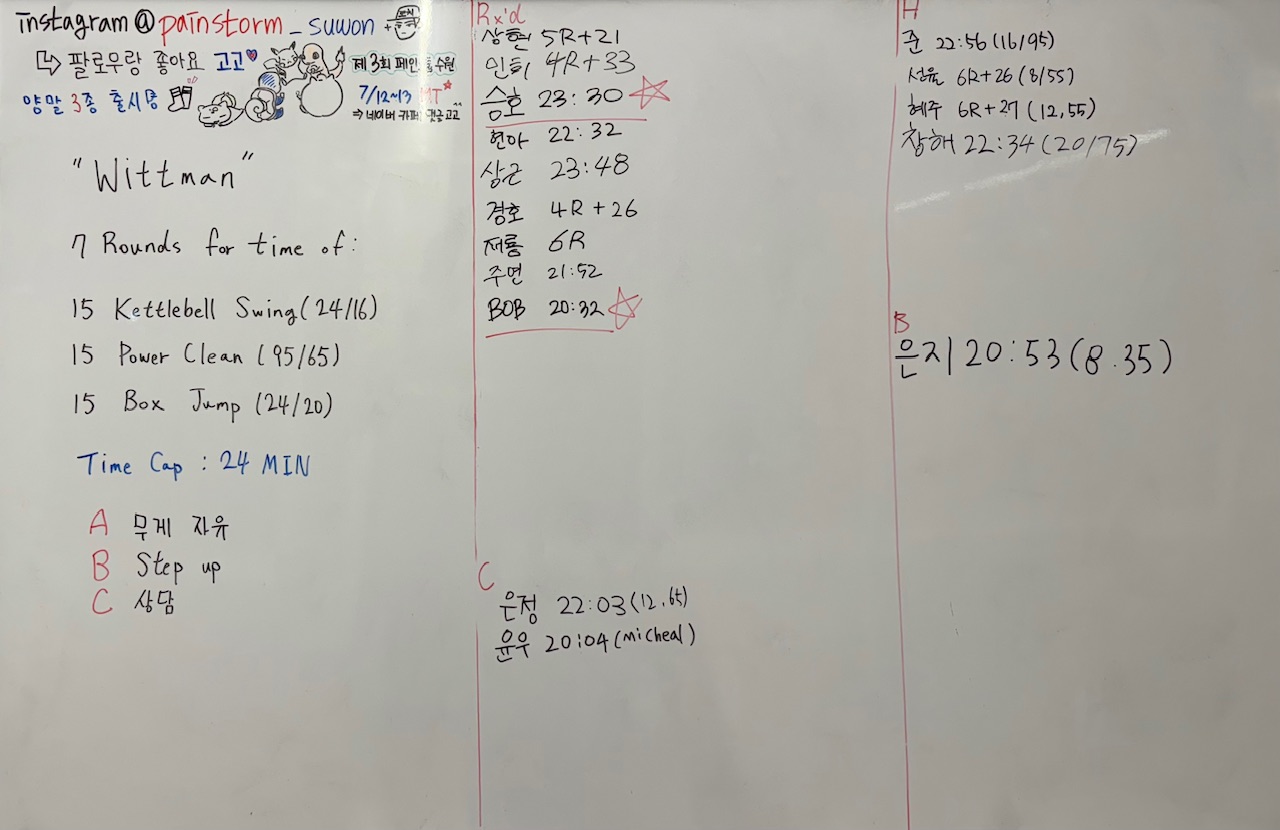 instagram@painstorm_suwon
↳ 팔로우랑 좋아요 고고♥
양말 3종 출시중
제 3회 페인 수원
7/12~13 MT
⇒ 네이버 카페 댓글고고
"Wittman"
7 Rounds for time of:
15 Kettlebell Swing (24/16)
15 Power Clean (95/65)
15 Box Jump (24/20)
Time Cap : 24 MIN
A 무게 자유
B Step up
C 상담
Rx'd
상현 5R+21
인희 4R+33
승호 23:30 ☆
현아 22:32
상근 23:48
경호 4R+26
재룡 6R
주면 21:52
BOB 20:32 ☆
C
은정 22:03 (12.65)
윤우 20:04 (micheal)
준 22:56 (16/95)
선율 6R+26 (8/55)
혜주 6R+27 (12,55)
창해 22:34 (20/75)
B
은지 20:53 (8.35)